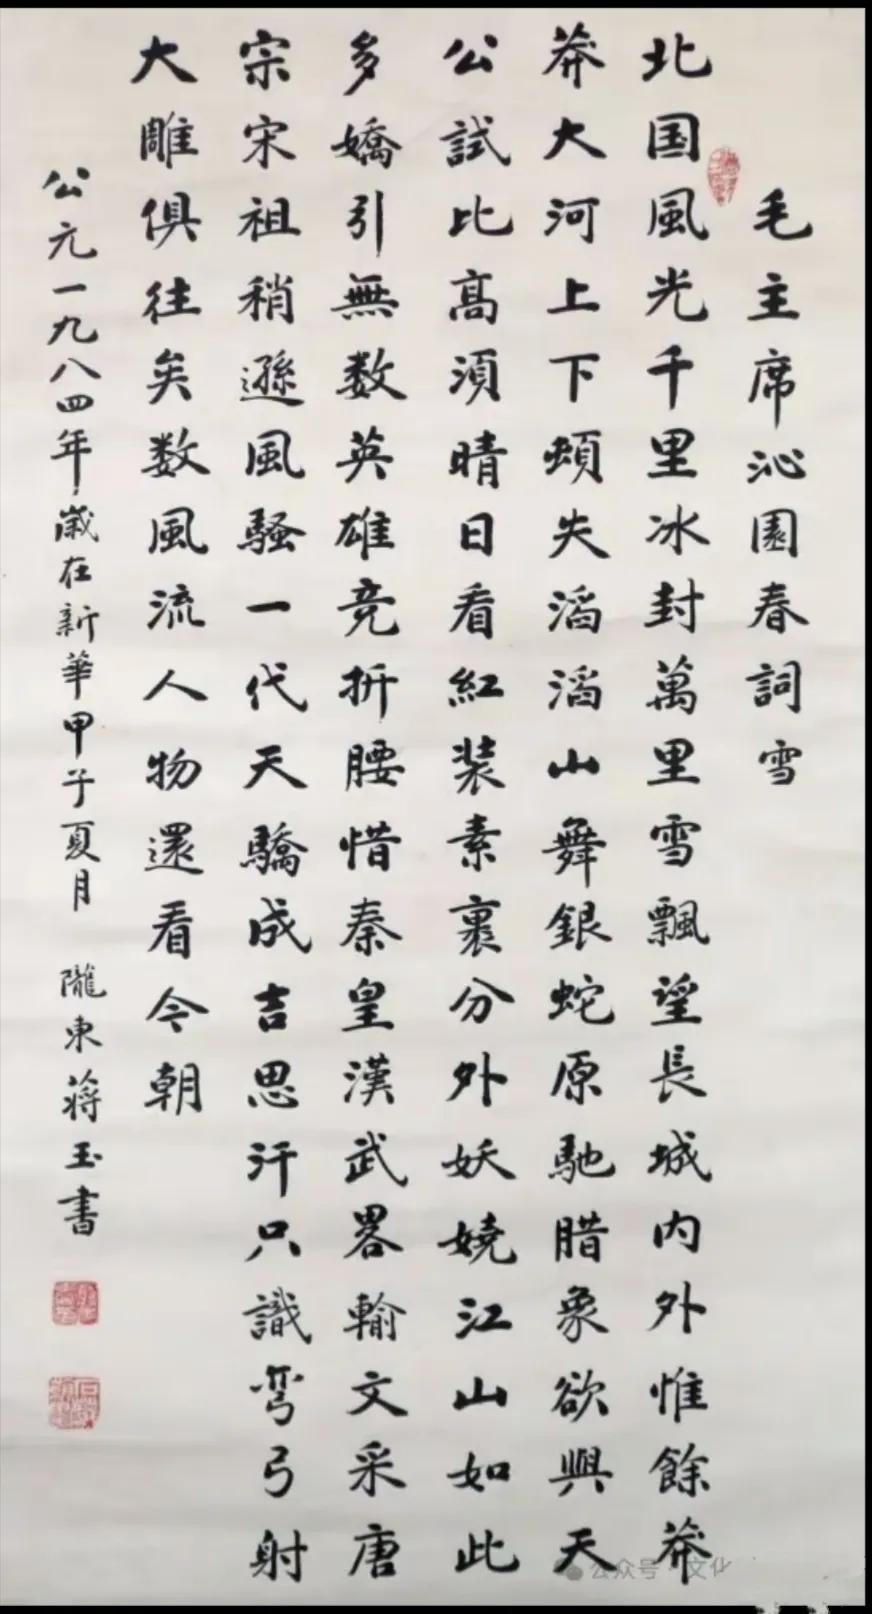 毛主席沁園春詞雪
北国風光千里冰封萬里雪飄望長城内外惟餘莽
莽大河上下頓失滔滔山舞銀蛇原馳腊象欲與天
公試比高須晴日看紅装素裹分外妖嬈江山如此
多嬌引無数英雄竞折腰惜秦皇漢武畧輸文采唐
宗宋祖稍遜風騷一代天驕成吉思汗只識弯弓射
大雕俱往矣数風流人物還看今朝
公元一九八四年歲在新華甲子夏月 隴東蔣玉書
公众号·文化